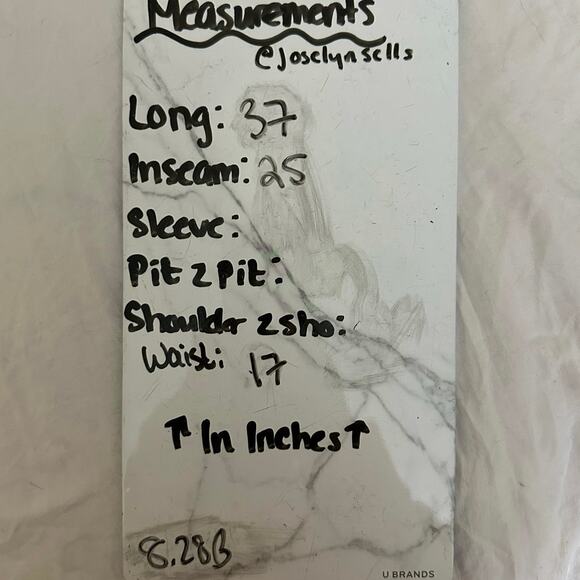 Measurements
@joselynsells
Long: 37
Inseam: 25
Sleeve:
Pit 2 Pit:
Shoulder 2 sho:
Waist: 17
↑ In Inches ↑
8.28B
U BRANDS